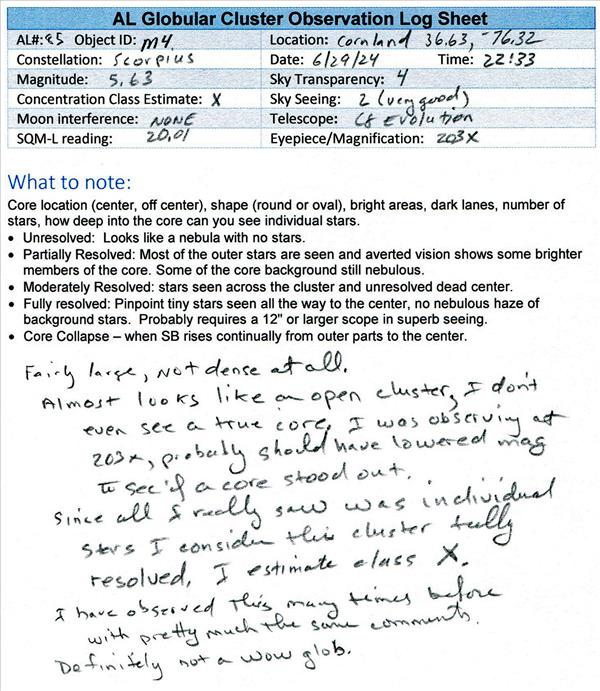 AL Globular Cluster Observation Log Sheet
AL#: 85 Object ID: M4 Location: Cornland 36.63, -76.32
Constellation: Scorpius Date: 6/29/24 Time: 22:33
Magnitude: 5.63 Sky Transparency: 4
Concentration Class Estimate: X Sky Seeing: 2 (very good)
Moon interference: NONE Telescope: C8 Evolution
SQM-L reading: 20.01 Eyepiece/Magnification: 203X
What to note:
Core location (center, off center), shape (round or oval), bright areas, dark lanes, number of
stars, how deep into the core can you see individual stars.
• Unresolved: Looks like a nebula with no stars.
• Partially Resolved: Most of the outer stars are seen and averted vision shows some brighter
members of the core. Some of the core background still nebulous.
• Moderately Resolved: stars seen across the cluster and unresolved dead center.
• Fully resolved: Pinpoint tiny stars seen all the way to the center, no nebulous haze of
background stars. Probably requires a 12" or larger scope in superb seeing.
• Core Collapse – when SB rises continually from outer parts to the center.
Fairly large, not dense at all.
Almost looks like an open cluster, I don't
even see a true core. I was observing at
203x, probably should have lowered mag
to see if a core stood out.
Since all I really saw was individual
stars I consider this cluster fully
resolved. I estimate class X.
I have observed this many times before
with pretty much the same comments.
Definitely not a wow glob.